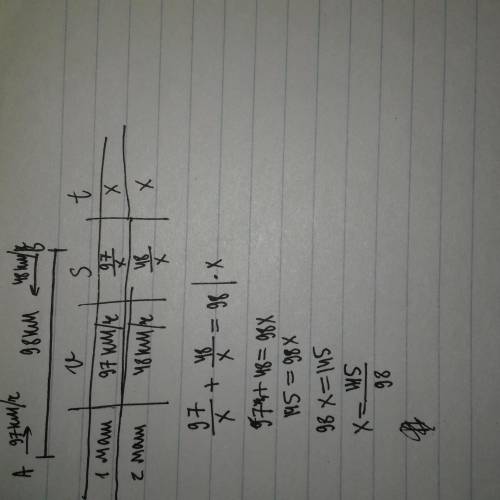 A 97км/г 98км 48км/г В
v S t
1 маш 97 км/г 97/x x
2 маш 48 км/г 48/x x
97/x + 48/x = 98 | · x
97 + 48 = 98x
145 = 98x
98 x = 145
x = 145/98